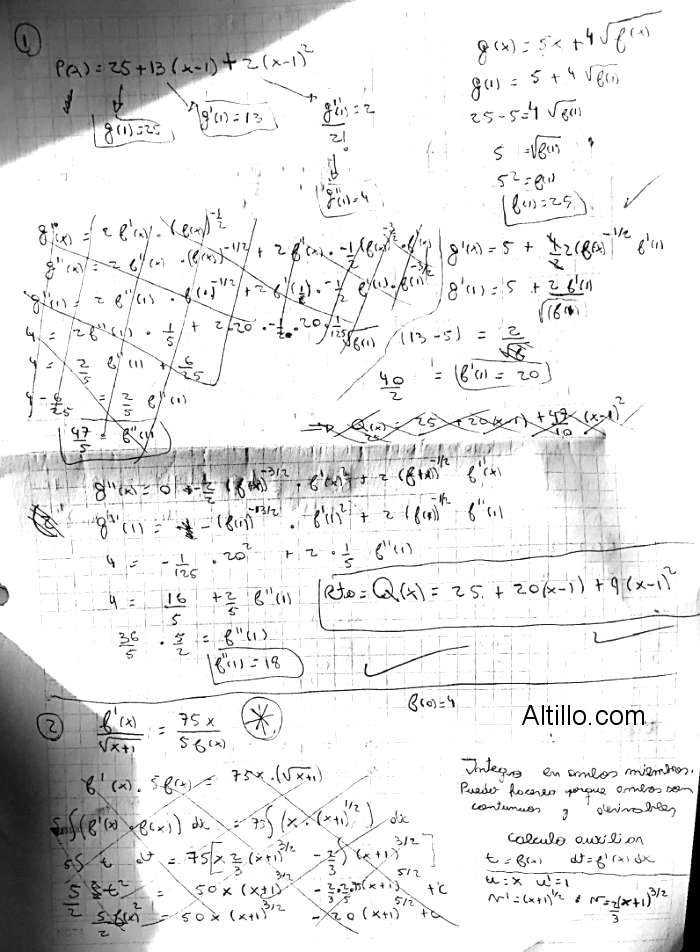 ①
P(x) = 25 + 13 (x-1) + 2 (x-1)²
g(1) = 25
g'(1) = 13
g''(1)/2! = 2
g''(1) = 4
g(x) = 5x + 4√f(x)
g(1) = 5 + 4√f(1)
25 - 5 = 4 √f(1)
5 = √f(1)
5² = f(1)
f(1) = 25
g'(x) = 5 + 4/2 (f(x))^-1/2 f'(1)
g'(1) = 5 + 2 f'(1)/√(f(1))
(13 - 5) = 2/√
40/2 = f'(1) = 20
g''(x) = 2 f'(x) · (f(x))^-1/2
g''(x) = 2 f''(x) · (f(x))^-1/2 + 2 f'(x) · -1/2 (f(x))^-3/2 · f'(x)
g''(1) = 2 f''(1) · f(1)^-1/2 + 2 f'(1) · -1/2 f'(1) · f(1)^-3/2
4 = 2 f''(1) · 1/5 + 2 · 20 · -1/2 · 20 · 1/125
4 = 2/5 f''(1) + 6/25
4 - 6/25 = 2/5 f''(1)
47/5 = f''(1)
→ Q(x) = 25 + 20(x-1) + 47/10 (x-1)²
g''(x) = 0 - 2/2 (f(x))^-3/2 · f'(x)² + 2 (f(x))^-1/2 f''(x)
g''(1) = - (f(1))^-3/2 · f'(1)² + 2 (f(x))^-1/2 f''(1)
4 = - 1/125 · 20² + 2 · 1/5 f''(1)
4 = 16/5 + 2/5 f''(1)
36/5 · 5/2 = f''(1)
f''(1) = 18
Rto = Q(x) = 25 + 20(x-1) + 9(x-1)²
② f'(x)/√x+1 = 75x/5f(x)
f(0)=4
Altillo.com
f'(x) · 5f(x) = 75x · (√x+1)
5 ∫(f'(x) · f(x)) dx = 75 ∫(x · (x+1)^1/2) dx
5∫ t dt = 75[x 2/3 (x+1)^3/2 - 2/3 ∫(x+1)^3/2]
5/2 t² = 50x (x+1)^3/2 - 2/3 · 2/5 · 75(x+1)^5/2 + c
5f(x)²/2 = 50x (x+1)^3/2 - 20(x+1)^5/2 + c
Integro en ambos miembros.
Puedo hacerlo porque ambos son
continuos y derivables
Calculo auxiliar
t = f(x) dt = f'(x) dx
u = x u' = 1
v' = (x+1)^1/2 v = 2/3 (x+1)^3/2